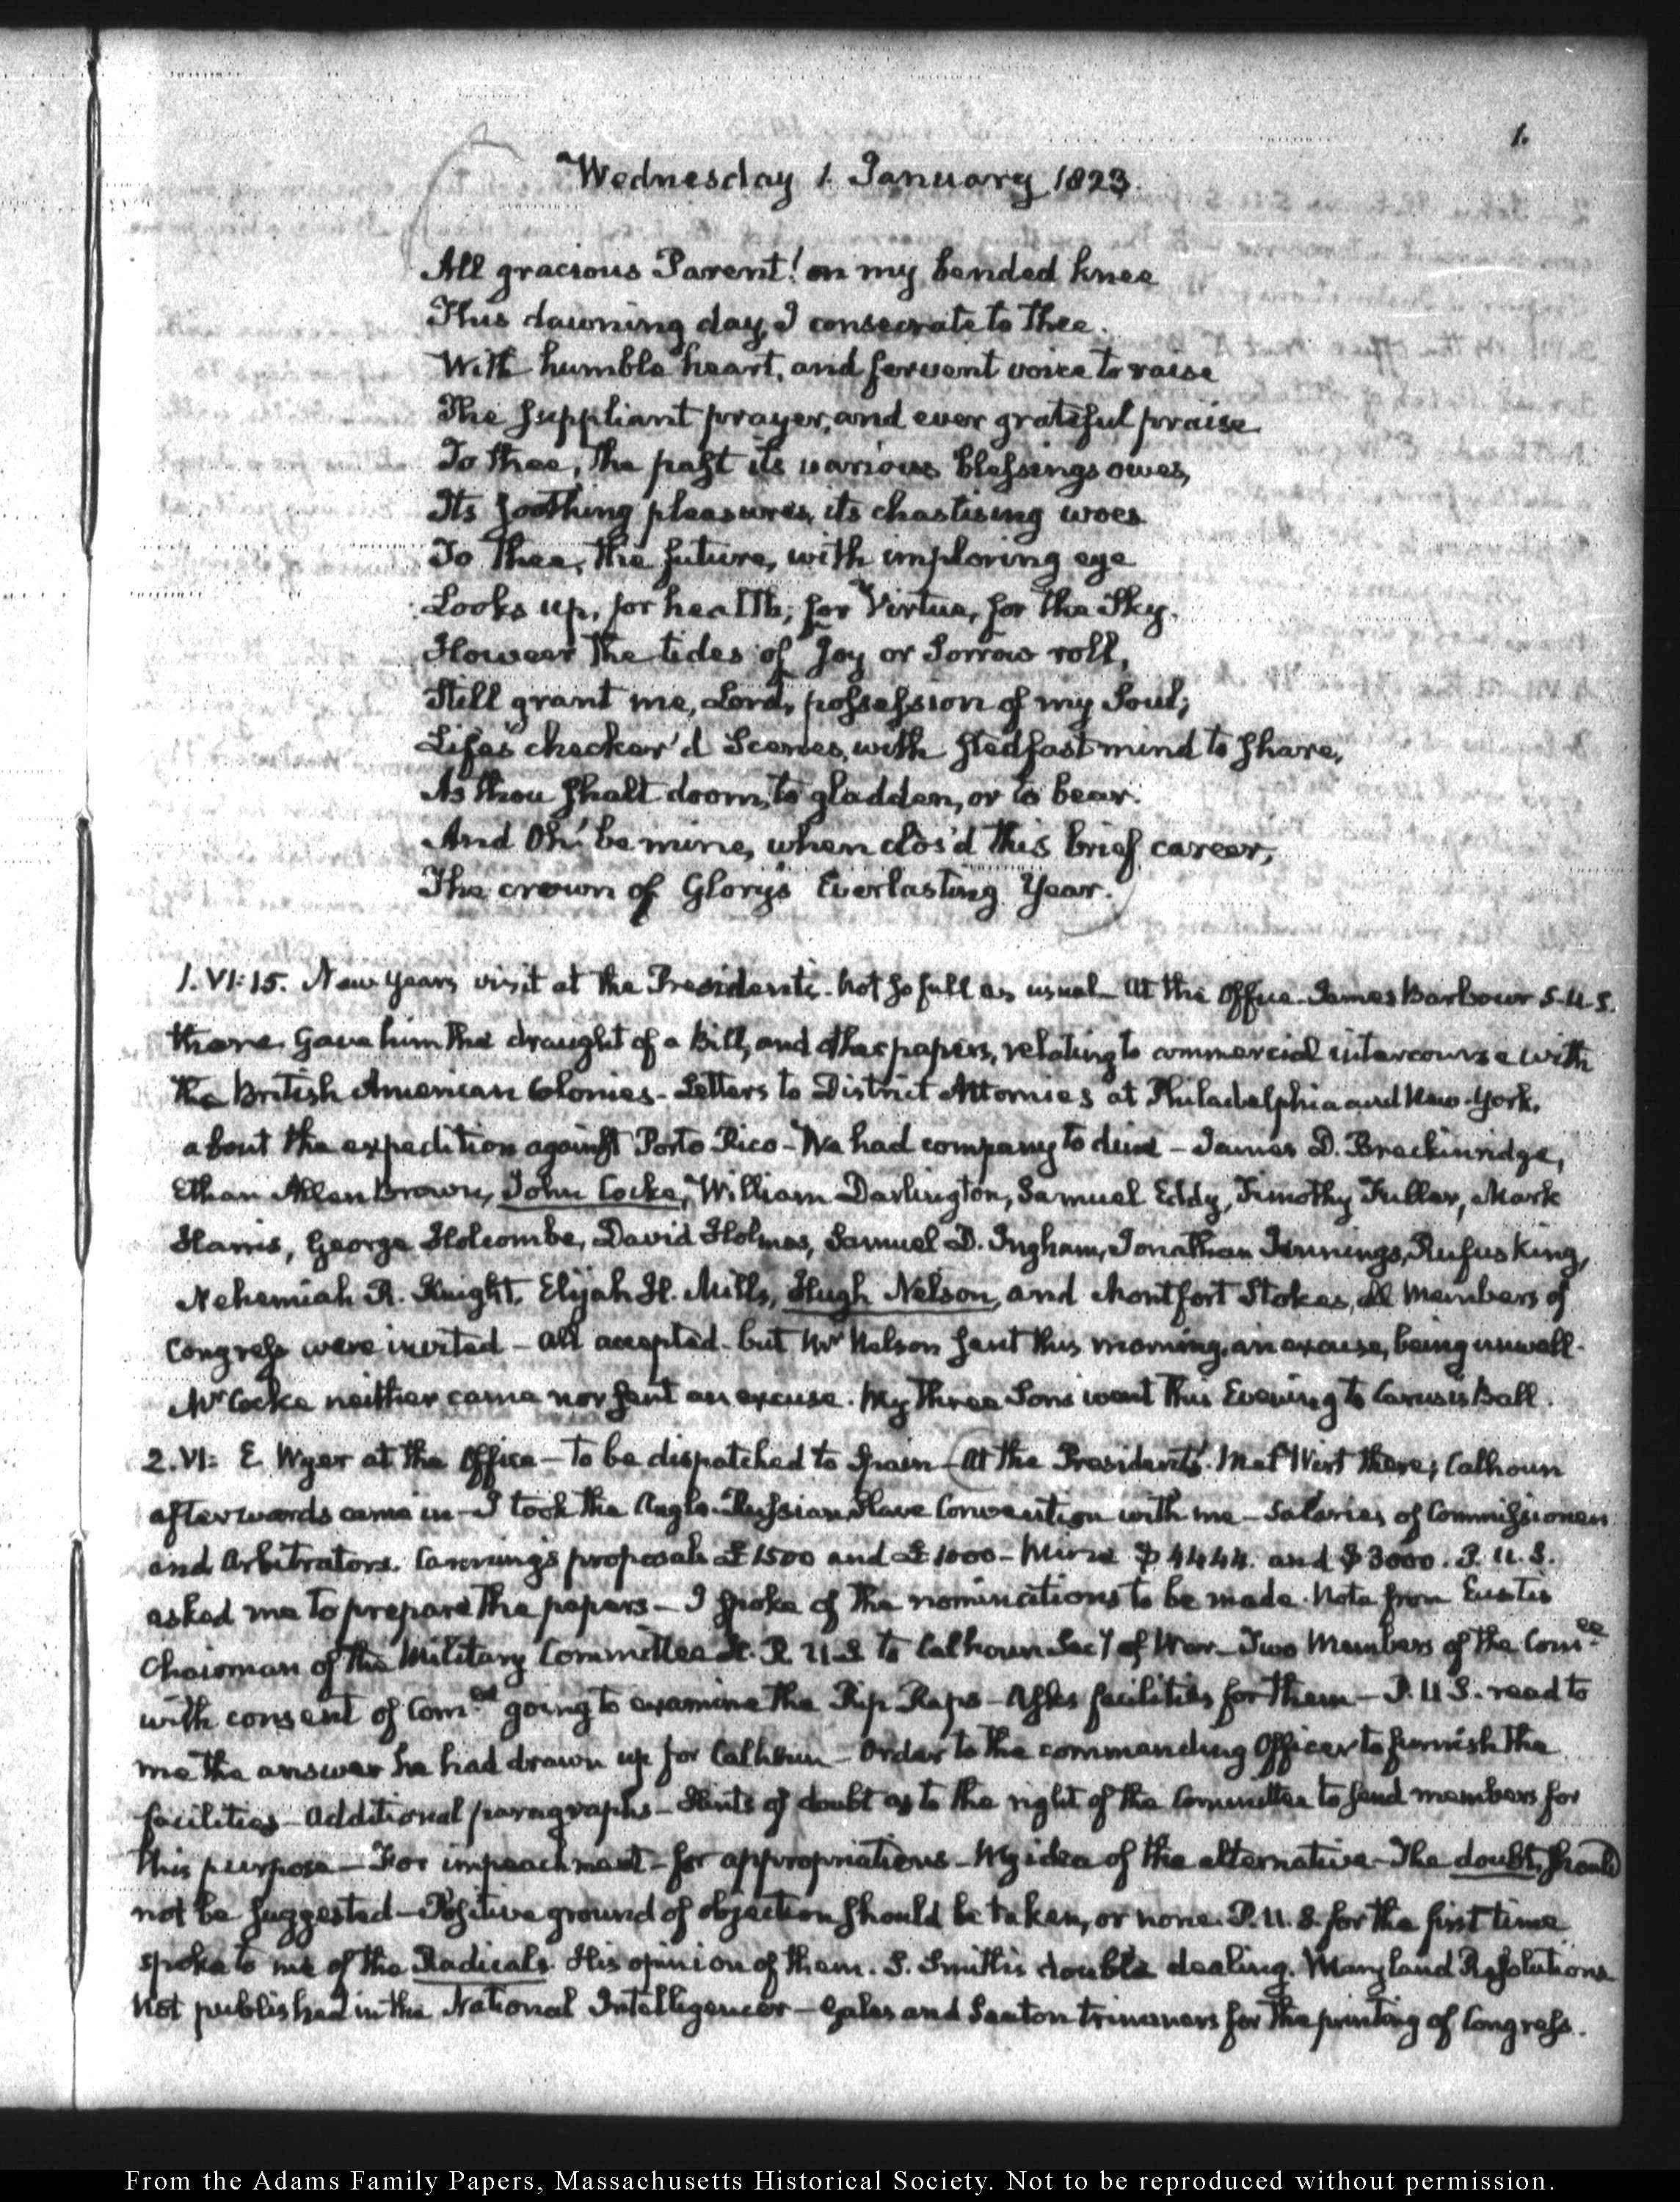 1.
Wednesday 1. January 1823.
All gracious Parent! on my bended knee
This dawning day, I consecrate to thee.
With humble heart, and fervent voice to raise
The suppliant prayer, and ever grateful praise
To thee, the past its various blessings owes,
Its soothing pleasures, its chastising woes
To thee, the future, with imploring eye
Looks up, for health, for Virtue, for the Sky.
Howe'er the tides of Joy or Sorrow roll,
Still grant me, Lord, possession of my Soul;
Life's checker'd Scenes, with stedfast mind to share,
As thou shalt doom, to gladden, or to bear.
And Oh! be mine, when clos'd this brief career,
The crown of Glory's Everlasting Year.
1. VI: 15. New Years visit at the President's. Not so full as usual — At the Office. James Barbour S. U. S.
there. Gave him the draught of a Bill, and other papers, relating to commercial intercourse with
the British American Colonies — Letters to District Attornies at Philadelphia and New-York,
about the expedition against Porto Rico — We had company to dine — James D. Breckinridge,
Ethan Allen Brown, John Cocke, William Darlington, Samuel Eddy, Timothy Fuller, Mark
Harris, George Holcombe, David Holmes, Samuel D. Ingham, Jonathan Jennings, Rufus King,
Nehemiah R. Knight, Elijah H. Mills, Hugh Nelson, and Montfort Stokes, all Members of
Congress were invited — All accepted — but Mr Nelson sent this morning, an excuse, being unwell.
Mr Cocke neither came nor sent an excuse. My three Sons went this Evening to Carusi's Ball.
2. VI: E Wyer at the Office — to be dispatched to Spain — At the President's. Met Wirt there; Calhoun
afterwards came in — I took the Anglo-Russian Slave Convention with me — Salaries of Commissioners
and Arbitrators. Canning's proposals £1500 and £1000 — Mine $4444. and $3000. P. U. S.
asked me to prepare the papers — I spoke of the nominations to be made. Note from Eustis
Chairman of the Military Committee H. R. U. S to Calhoun Secy of War — Two Members of the Comee
with consent of Comee going to examine the Rip Raps — Asks facilities for them — P. U S. read to
me the answer he had drawn up for Calhoun — Order to the commanding Officer to furnish the
facilities — Additional paragraphs — Hints of doubt as to the right of the Committee to send members for
this purpose — For impeachment — for appropriations — My idea of the alternative — The doubt, should
not be suggested — Positive ground of objection should be taken, or none. P. U. S. for the first time
spoke to me of the Radicals. His opinion of them. S. Smith's double dealing. Maryland Resolutions
Not published in the National Intelligencer — Gales and Seaton trimmers for the printing of Congress.
From the Adams Family Papers, Massachusetts Historical Society. Not to be reproduced without permission.